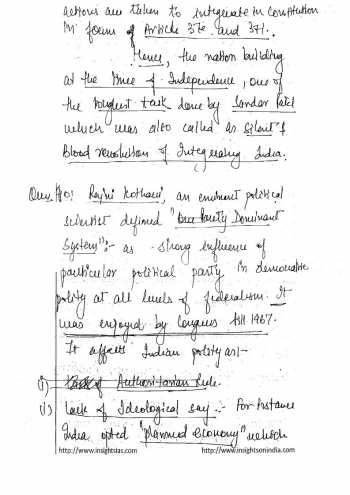 actions are taken to integrate in constitution
in form of Article 370 and 371.
Hence, the nation building
at the time of Independence, one of
the toughest task done by Sardar Patel
which was also called as Silent &
Blood revolution of Integrating India.
Ques. #10: Rajni Kothari, an eminent political
scientist defined "One Party Dominant
System":- as strong influence of
particular political party in democratic
polity at all levels of federalism. It
was enjoyed by Congress till 1967.
It affects Indian polity as:-
(i) Authoritarian rule.
(i) Lack of Ideological say :- For Instance
India opted "planned economy" which
http://www.insightsias.com http://www.insightsonindia.com